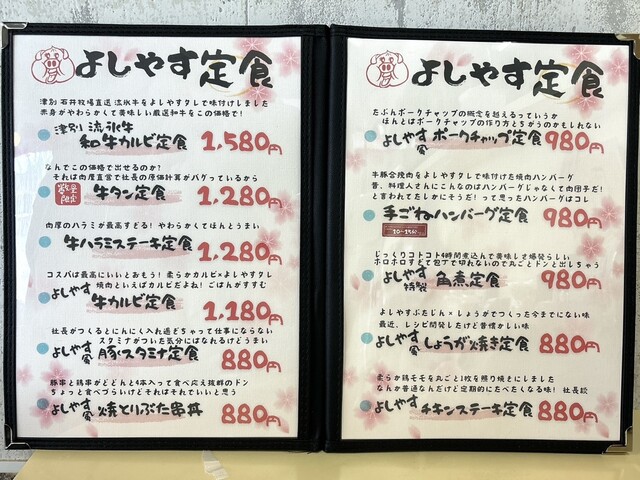 よしやす定食
津別 石井牧場直送 流氷牛をよしやすタレで味付けしました
赤身がやわらかくて美味しい厳選和牛をこの価格で!
津別 流氷牛
和牛カルビ定食 1,580円
なんでこの価格で出せるのか?
それは肉屋直営で社長の原価計算がバグっているから
数量限定
牛タン定食 1,280円
肉厚のハラミが最高すぎる! やわらかくてほんとうまい
牛ハラミステーキ定食 1,280円
コスパは最高にいいとおもう! 柔らかカルビ×よしやすタレ
焼肉といえばカルビだよね! ごはんがすすむ
よしやす 牛カルビ定食 1,180円
社長がつくるとにんにく入れ過ぎちゃって仕事にならない
スタミナがついた気分にはなれるけどうまい
よしやす風 豚スタミナ定食 880円
豚串と鶏串がどどんと4本入って食べ応え抜群のドン
ちょっと食べづらいけどそれはそれでいいと思う
よしやす風 焼とりぶた串丼 880円
よしやす定食
たぶんポークチャップの概念を超えるっていうか
ほんとはポークチャップの作り方とちがうのかもしれない
よしやす風 ポークチャップ定食 980円
牛豚合挽肉をよしやすタレで味付けた焼肉ハンバーグ
昔、料理人さんにこんなのはハンバーグじゃなくて肉団子だ!
と言われてたしかにそうだ! って思ったハンバーグはコレ
手ごねハンバーグ定食 980円
10〜15分
じっくりコトコト4時間煮込んで美味しさ爆発らしい
ホロホロすぎて包丁で切れないので丸ごとドンと出しちゃう
よしやす特製 角煮定食 980円
よしやすぶたじん×しょうがでつくった今までにない味
最近、レシピ開発したけど昔懐かしい味
よしやす風 しょうが焼き定食 880円
柔らか鶏モモを丸ごと1枚を照り焼とにしました
なんか普通なんだけど定期的にたべたくなる味! 社長談
よしやす チキンステーキ定食 880円